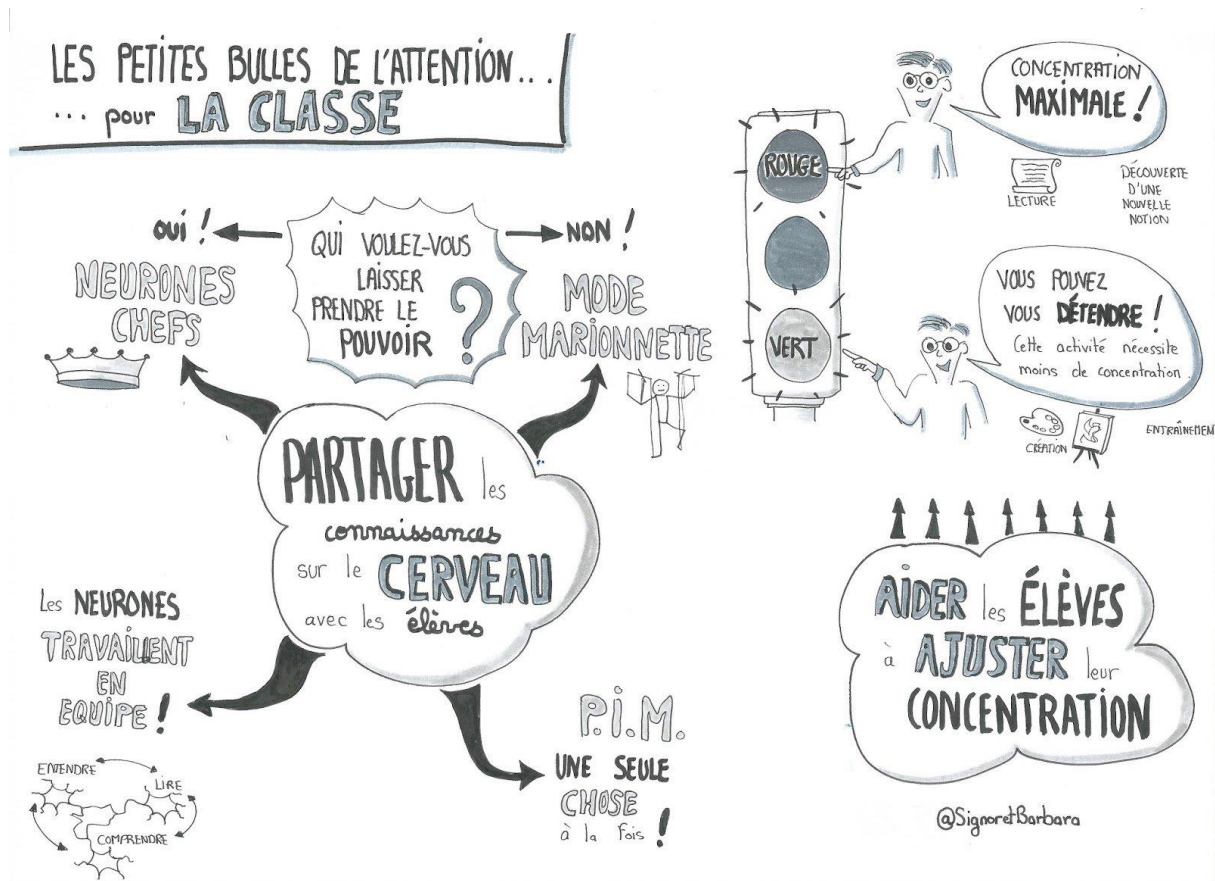 LES PETITES BULLES DE L'ATTENTION...
... pour LA CLASSE
OUI !
QUI VOULEZ-VOUS
LAISSER
PRENDRE LE
POUVOIR ?
NON !
NEURONES
CHEFS
MODE
MARIONNETTE
PARTAGER les
connaissances
sur le CERVEAU
avec les élèves
Les NEURONES
TRAVAILLENT
EN
EQUIPE !
ENTENDRE
LIRE
COMPRENDRE
P.I.M.
UNE SEULE
CHOSE
à la fois !
ROUGE
VERT
CONCENTRATION
MAXIMALE !
LECTURE
DÉCOUVERTE
D'UNE
NOUVELLE
NOTION
VOUS POUVEZ
VOUS DÉTENDRE !
Cette activité nécessite
moins de concentration.
CRÉATION
ENTRAÎNEMEN
AIDER les ÉLÈVES
à AJUSTER leur
CONCENTRATION
@SignoretBarbara